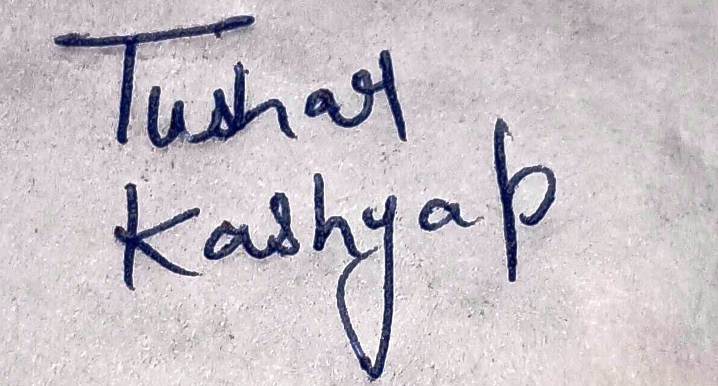 Tushar
Kashyap